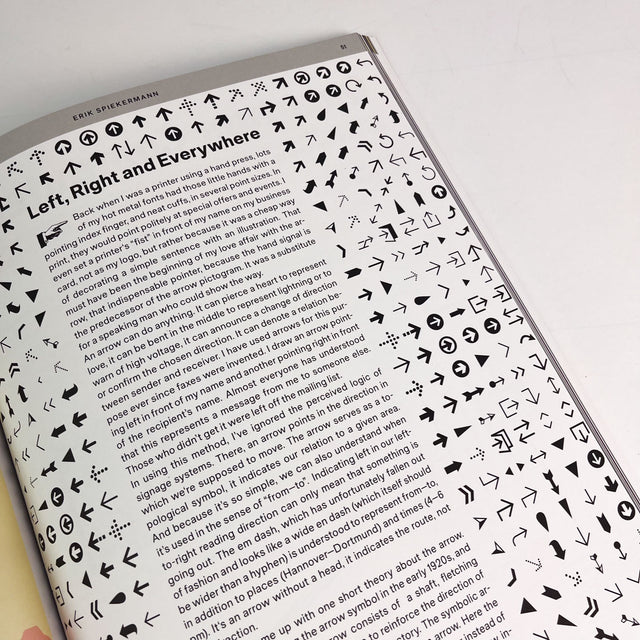 51
ERIK SPIEKERMANN
Left, Right and Everywhere
Back when I was a printer using a hand press, lots
of my hot metal fonts had those little hands with a
pointing index finger, and neat cuffs, in several point sizes. In
print, they would point politely at special offers and events. I
even set a printer's "fist" in front of my name on my business
card, not as my logo, but rather because it was a cheap way
of decorating a simple sentence with an illustration. That
must have been the beginning of my love affair with the ar-
row, that indispensable pointer, because the hand signal is
the predecessor of the arrow pictogram. It was a substitute
for a speaking man who could show the way.
An arrow can do anything. It can pierce a heart to represent
love, it can be bent in the middle to represent lightning or to
warn of high voltage, it can announce a change of direction
or confirm the chosen direction. It can denote a relation be-
tween sender and receiver. I have used arrows for this pur-
pose ever since faxes were invented. I draw an arrow point-
ing left in front of my name and another pointing right in front
of the recipient's name. Almost everyone has understood
that this represents a message from me to someone else.
Those who didn't get it were left off the mailing list.
In using this method, I've ignored the perceived logic of
signage systems. There, an arrow points in the direction in
which we're supposed to move. The arrow serves as a to-
pological symbol, it indicates our relation to a given area.
And because it's so simple, we can also understand when
it's used in the sense of "from–to". Indicating left in our left-
to-right reading direction can only mean that something is
going out. The em dash, which has unfortunately fallen out
of fashion and looks like a wide en dash (which itself should
be wider than a hyphen) is understood to represent from–to,
in addition to places (Hannover–Dortmund) and times (4–6
pm). It's an arrow without a head, it indicates the route, not
me up with one short theory about the arrow.
the arrow symbol in the early 1920s, and
consists of a shaft, fletching
to reinforce the direction of
The symbolic ar-
arrow. Here the
instead of